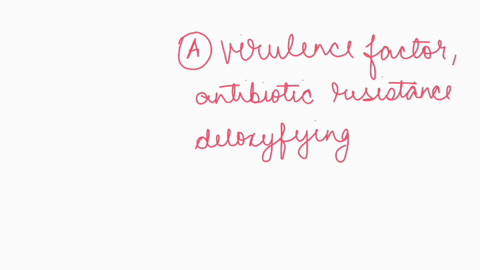 Ⓐ virulence factor,
antibiotic resistance
detoxyfying